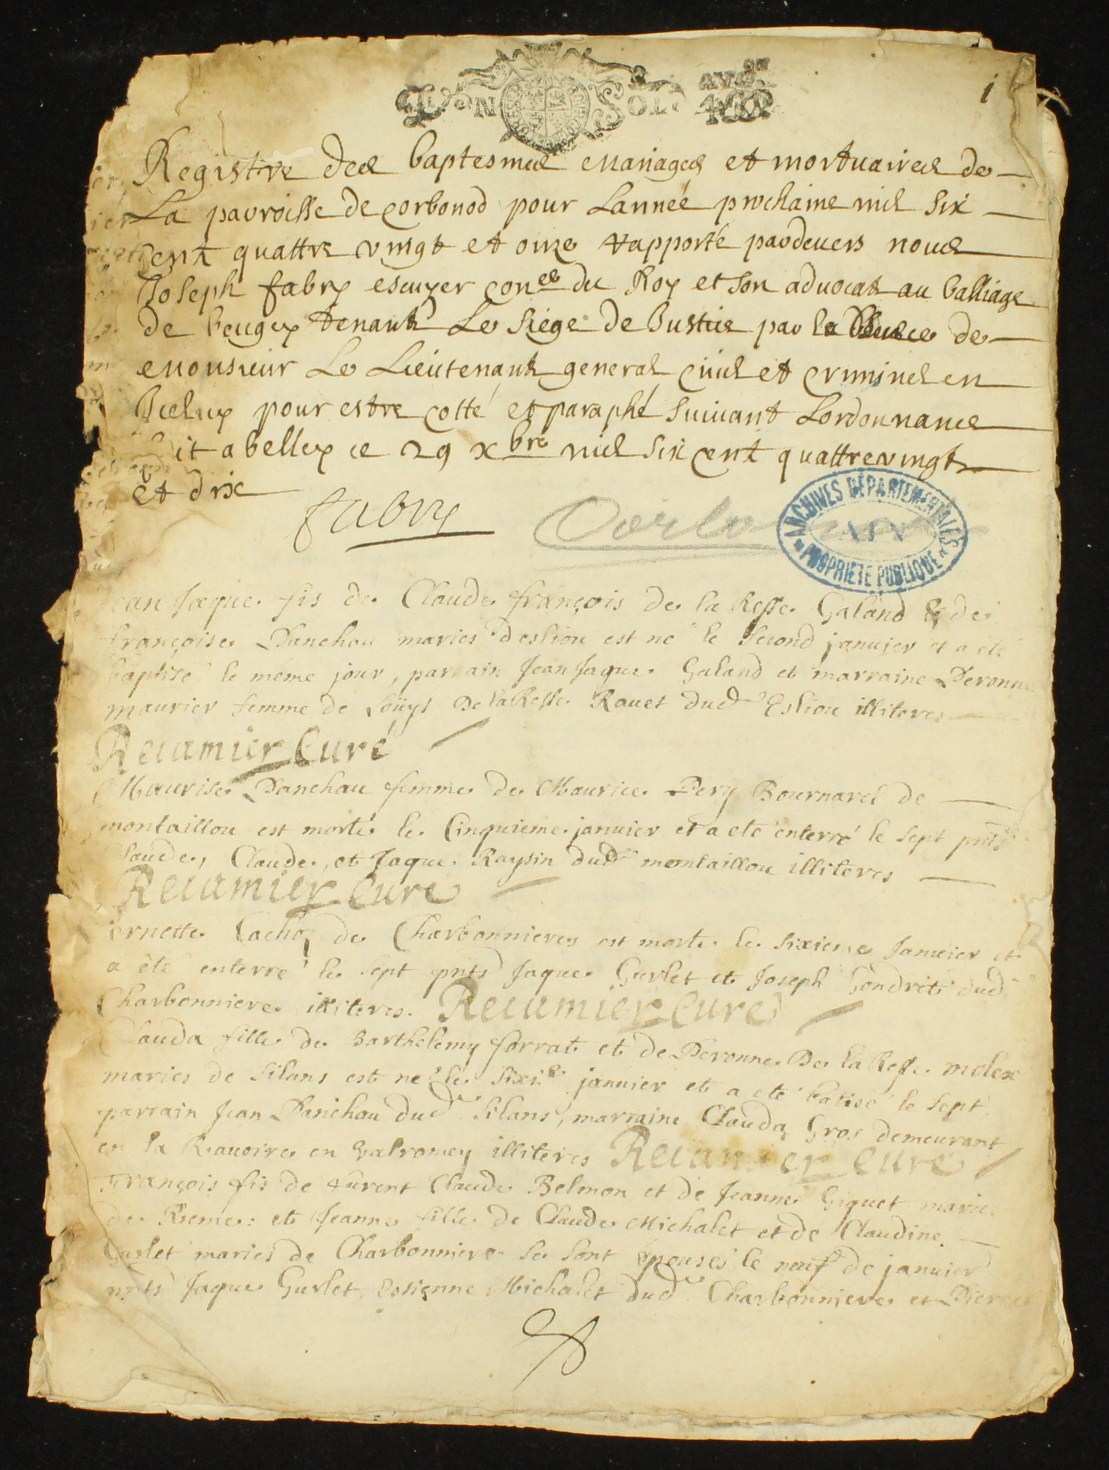 1
Registre des baptesmes mariages et mortuaires de
La parroisse de corbonod pour Lanneé prochaine mil Six
Cent quattre vingt et onze rapporté pardevers nous
Joseph fabry escuyer coner du Roy et son advocat au balliage
de beugey tenant Le Siége de Justice par de
monsieur Le Lieutenant general civil et criminel en
pour estre cotté et paraphé Suivant Lordonnance
a belley ce 29 xbre mil six cent quattrevingt
et dix
fabry
ARCHIVES DÉPARTEMENTALES
AIN
PROPRIÉTÉ PUBLIQUE
Jean Jaque fis de Claude françois de la Resse Galand & de
françoise Panchau maries deslion est né le second janvier et a eté
baptisé le meme jour, parrain Jean Jaque Galand et marraine Peronne
maurier femme de Loüys De la Resse Rouet dud Eslion illiteres
Recamier Curé
Maurise Panchau femme de Maurice Pery Bournard de
montaillou est morte le Cinquieme janvier et a eté enterré le sept pnts
Claude, Claude, et Jaque Raysin dud montaillou illiteres
Recamier Curé
de Charbonnieres est morte le sixieme Janvier et
a été enterré le sept pnts Jaque Gurlet et Joseph Gondret dud
Charbonniere illiteres. Recamier Curé
Clauda fille de Barthelemy forrat et de Peronne De la Resse molex
maries de Silans est né le sixie janvier et a eté batisé le sept
parrain Jean Panchau dud Silans, marraine Clauda Gros demeurant
en la Ravoire en Valromey illiteres Recamier Curé
François fis de furent Claude Belmon et de Jeanne Giguet maries
de et Jeanne fille de Claude Michalet et de Claudine
Curlet maries de Charbonniere se sont épousés le neuf de janvier
pnts Jaque Gurlet, Estienne Michalet dud Charbonniere et Pierre